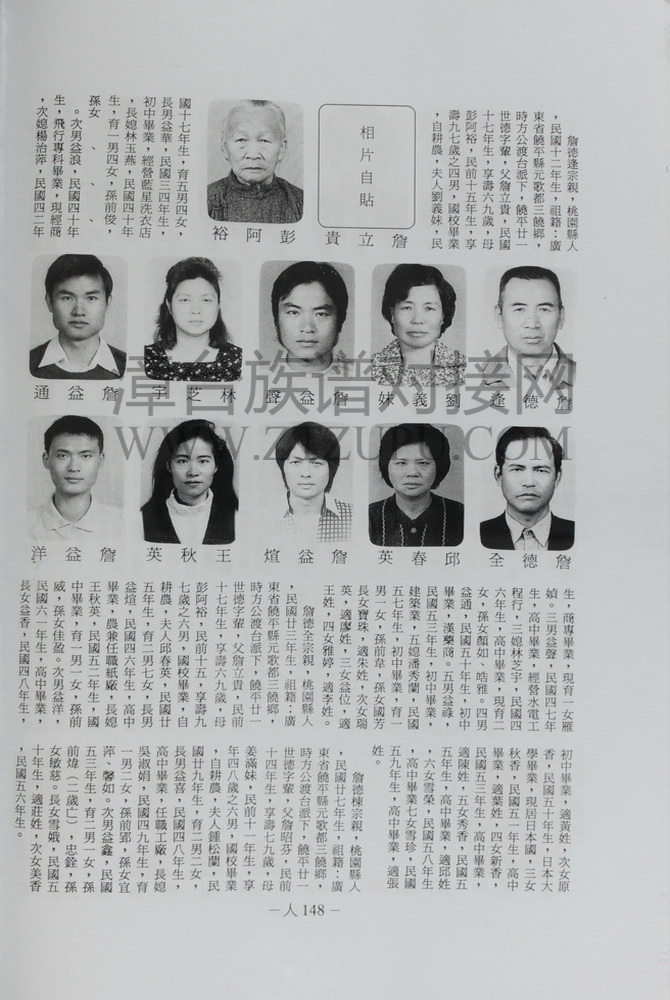 詹德逢宗親，桃園縣人
，民國十二年生，祖籍：廣
東省饒平縣元歌都三饒鄉，
時方公渡台派下，饒平廿一
世德字輩，父詹立貴，民前
十七年生，享壽六九歲，母
彭阿裕，民前十五年生，享
壽九七歲之四男，國校畢業
，自耕農，夫人劉義妹，民
相片自貼
詹立貴
彭阿裕
國十七年生，育五男四女，
長男益華，民國三四年生，
初中畢業，經營藍星洗衣店
，長媳林玉燕，民國四十年
生，育一男四女，孫前俊，
孫女、、、、
。次男益浪，民國四十年
生，飛行專科畢業，現經商
，次媳楊治萍，民國四二年
詹德逢
劉義妹
詹益聲
林芝宇
詹益通
詹德全
邱春英
詹益煊
王秋英
詹益洋
生，商專畢業，現育一女雁
媜。三男益聲，民國四七年
生，高中畢業，經營水電工
程行，三媳林芝宇，民國四
六年生，高中畢業，現育二
女，孫女顏如、皓雅。四男
益通，民國五十年生，初中
畢業，漢藥商。五男益祿，
民國五三年生，初中畢業，
建築業，五媳潘秀蘭，民國
五七年生，初中畢業，育一
男一女，孫前韋，孫女國芳
長女寶珠，適朱姓，次女瑞
英，適廖姓，三女益位，適
王姓，四女雅婷，適李姓。
詹德全宗親，桃園縣人
，民國廿三年生，祖籍：廣
東省饒平縣元歌都三饒鄉，
時方公渡台派下，饒平廿一
世德字輩，父詹立貴，民前
十七年生，享壽六九歲，母
彭阿裕，民前十五，享壽九
七歲之六男，國校畢業，自
耕農，夫人邱春英，民國廿
五年生，育二男七女，長男
益煊，民國四六年生，高中
畢業，農兼任職紙廠，長媳
王秋英，民國五二年生，國
中畢業，育一男一女，孫前
威，孫女佳盈。次男益洋，
民國六一年生，高中畢業，
長女益香，民國四八年生，
初中畢業，適黃姓，次女原
香，民國五十年生，日本大
學畢業，現居日本國，三女
秋香，民國五一年生，高中
畢業，適葉姓，四女新香，
民國五三年生，高中畢業，
適陳姓，五女秀香，民國五
五年生，高中畢業，適邱姓
，六女雪榮，民國五八年生
，高中畢業七女雪珍，民國
五九年生，高中畢業，適張
姓。
詹德棟宗親，桃園縣人
，民國廿七年生，祖籍：廣
東省饒平縣元歌都三饒鄉，
時方公渡台派下，饒平廿一
世德字輩，父詹昭芬，民前
十四年生，享壽七九歲，母
姜滿妹，民前十一年生，享
年四八歲之六男，國校畢業
，自耕農，夫人鍾松蘭，民
國廿九年生，育二男二女，
長男益喜，民國四八年生，
高中畢業，任職工廠，長媳
吳淑娟，民國四九年生，育
一男二女，孫前郢，孫女宜
萍、馨如。次男益鑫，民國
五三年生，育二男一女，孫
前煒（二歲亡），忠銓，孫
女敏慈。長女雪娥，民國五
十年生，適莊姓，次女美香
，民國五六年生。
－人148－
漳台族谱对接网
WWW.ZTZUPU.COM